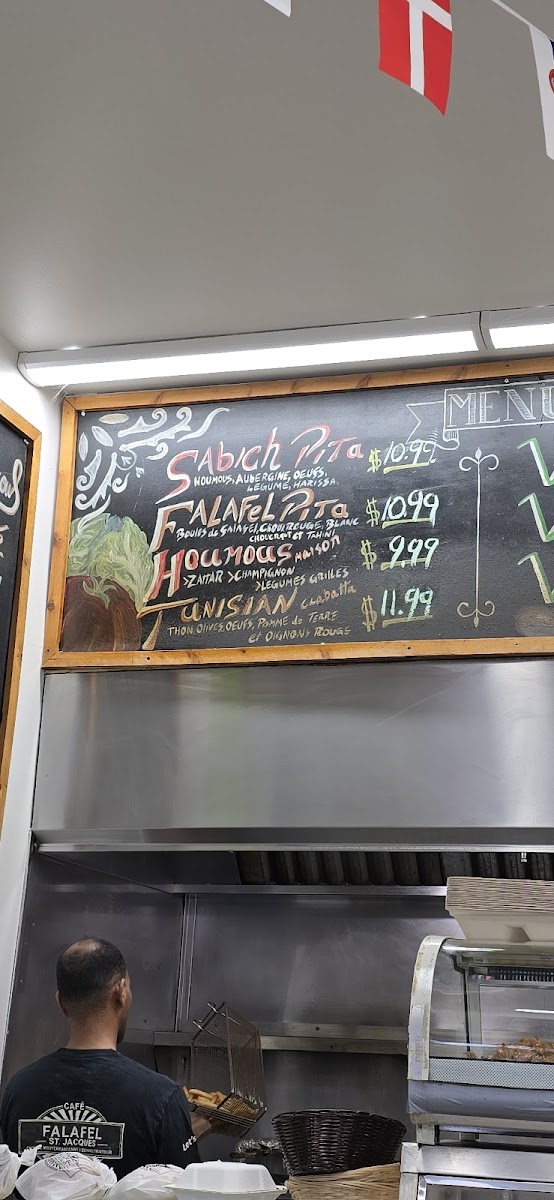 MENU
SABICH PITA $10.99
HOUMOUS, AUBERGINE, OEUFS,
LEGUME, HARISSA
FALAFEL PITA $10.99
BOULES de FALAFEL, CHOUX ROUGE, BLANC
CHOUCROUT ET TAHINI
HOUMOUS MAISON $9.99
>ZATTAR >CHAMPIGNON
>LEGUMES GRILLES
TUNISIAN CIABATTA $11.99
THON, OLIVES, OEUFS, POMME de TERRE
et OIGNONS ROUGE
CAFÉ
FALAFEL
ST. JACQUES
Let's